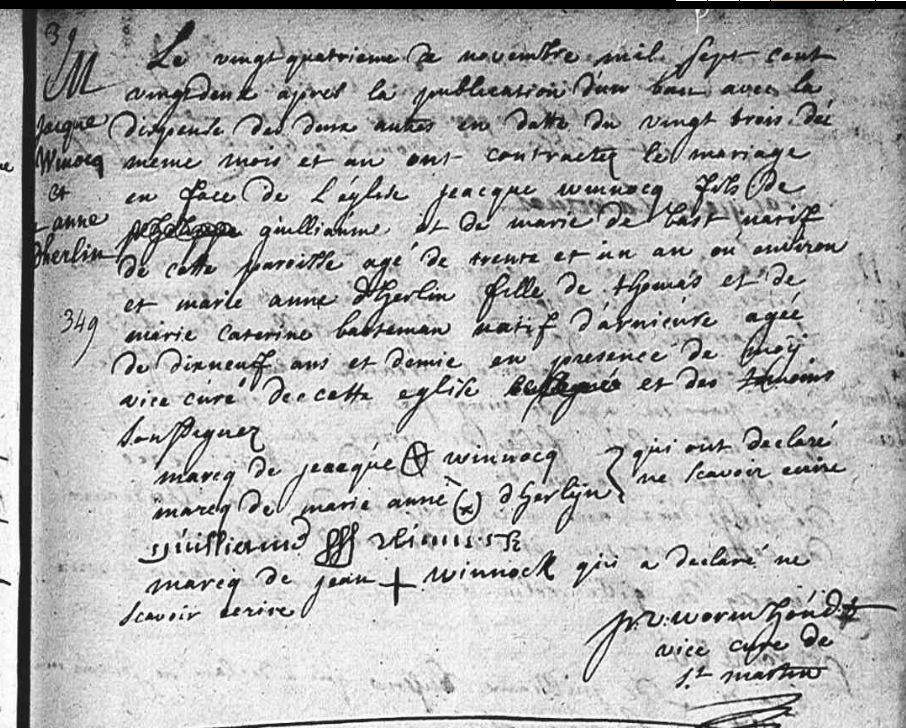 39
M
Jacque
Winocq
et
anne
dherlin
349
Le vingt quatrieme de novembre mil sept cent
vingt deux apres la publication d'un ban avec la
dispense des deux autres en datte du vingt trois de
meme mois et an ont contracter le mariage
en face de l'église jeacque winnocq fils de
guilliaume et de marie de bast natif
de cette paroisse agé de trente et un an ou environ
et marie anne d'herlin fille de thomas et de
marie caterine basteman natif d'arnieure agée
de dixneuf ans et demie en presence de moÿ
vice curé de cette eglise et des temoins
soussignez
marcq de jeacque winnocq qui ont declaré
marcq de marie anne d'herlijn ne scavoir ecrire
guilliaume
marcq de jean + winnock qui a declaré ne
scavoir ecrire
vice cure de
st martin